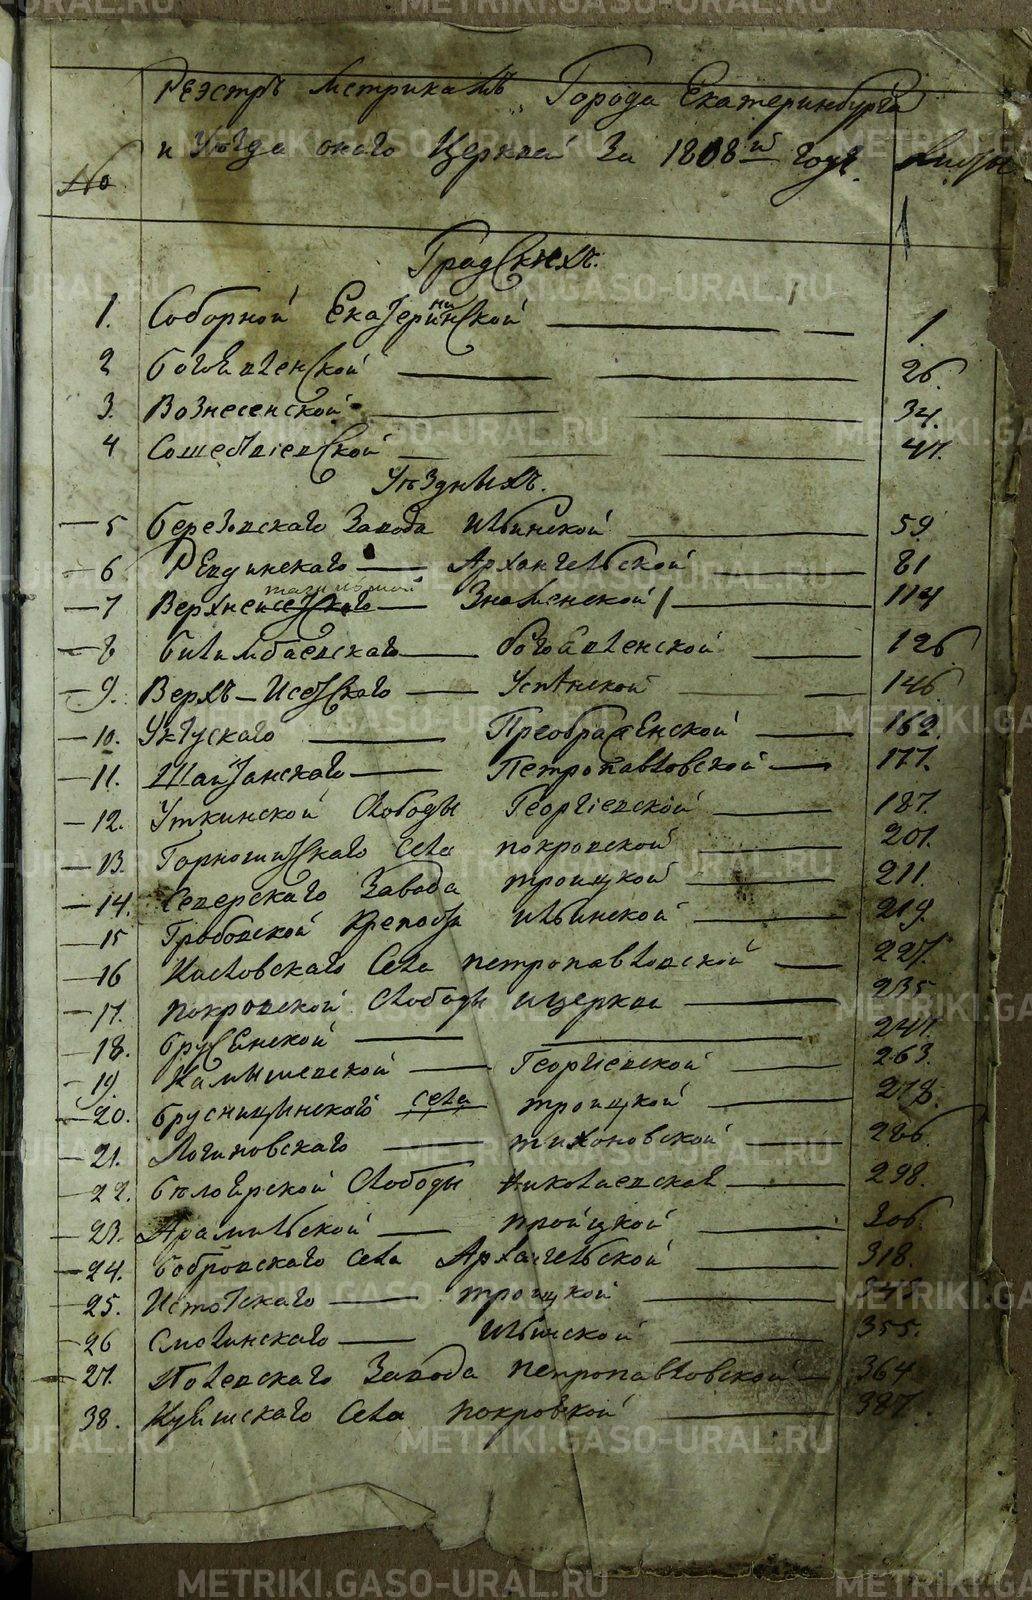 Реэстръ Метрикамъ Города Екатеринбурга
и Уѣзда онаго Церквей За 1808й годъ. Листы
No
1
Градскихъ.
1. Соборной Екатерининской 1.
2 Богоявленской 26.
3. Вознесенской 34.
4 Сошественской 47.
Уѣздныхъ.
5 Березовскаго Завода Ильинской 59
6 Ревдинскаго Архангельской 81
7 Верхне Знаменской 114
8 Билимбаевскаго богоявленской 126
9. Верхъ-Исетскаго Успенской 146
10. Уктускаго Преображенской 169.
11. Шайтанскаго Петропавловской 177.
12. Уткинской Слободы Георгіевской 187.
13. Горнощитскаго Села покровской 201.
14. Северскаго Завода троицкой 211.
15 Гробовской Крепости Ильинской 219.
16 Кисловскаго Села петропавловской 227.
17. покровской Слободы церкви 235
18. брусенской 247.
19. Камышевской Георгіевской 263.
20. брусницынскаго села троицкой 278.
21. Логиновскаго тихоновской 286.
22. белоярской Слободы николаевской 298.
23. Арамильской троицкой 306.
24. бобровскаго Села Архангельской 318.
25. Истокскаго троицкой
26 Смолинскаго Ильинской 355.
27. Полевскаго Завода петропавловской 364
38. Села покровской 387.
METRIKI.GASO-URAL.RU